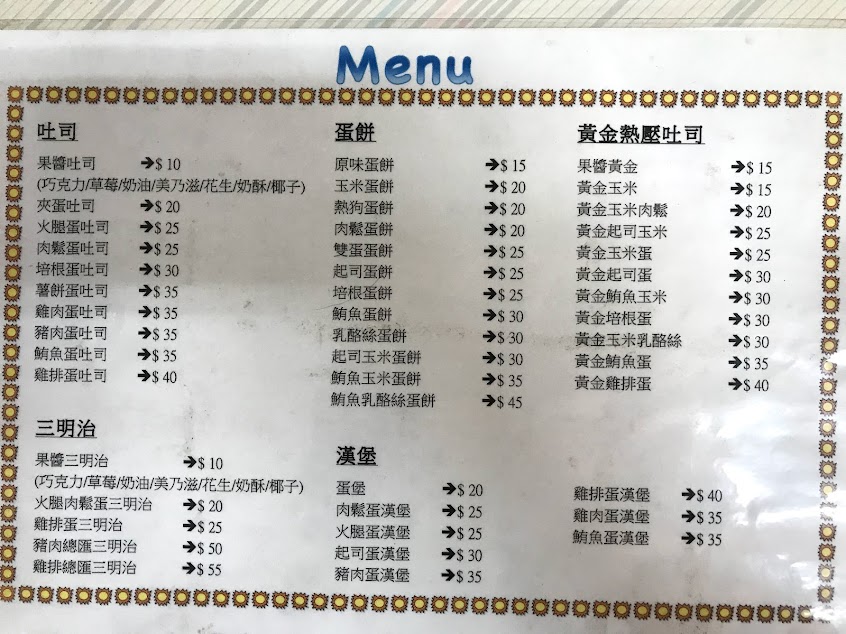 Menu
吐司
果醬吐司 ➔$ 10
(巧克力/草莓/奶油/美乃滋/花生/奶酥/椰子)
夾蛋吐司 ➔$ 20
火腿蛋吐司 ➔$ 25
肉鬆蛋吐司 ➔$ 25
培根蛋吐司 ➔$ 30
薯餅蛋吐司 ➔$ 35
雞肉蛋吐司 ➔$ 35
豬肉蛋吐司 ➔$ 35
鮪魚蛋吐司 ➔$ 35
雞排蛋吐司 ➔$ 40
三明治
果醬三明治 ➔$ 10
(巧克力/草莓/奶油/美乃滋/花生/奶酥/椰子)
火腿肉鬆蛋三明治 ➔$ 20
雞排蛋三明治 ➔$ 25
豬肉總匯三明治 ➔$ 50
雞排總匯三明治 ➔$ 55
蛋餅
原味蛋餅 ➔$ 15
玉米蛋餅 ➔$ 20
熱狗蛋餅 ➔$ 20
肉鬆蛋餅 ➔$ 20
雙蛋蛋餅 ➔$ 25
起司蛋餅 ➔$ 25
培根蛋餅 ➔$ 25
鮪魚蛋餅 ➔$ 30
乳酪絲蛋餅 ➔$ 30
起司玉米蛋餅 ➔$ 30
鮪魚玉米蛋餅 ➔$ 35
鮪魚乳酪絲蛋餅 ➔$ 45
黃金熱壓吐司
果醬黃金 ➔$ 15
黃金玉米 ➔$ 15
黃金玉米肉鬆 ➔$ 20
黃金起司玉米 ➔$ 25
黃金玉米蛋 ➔$ 25
黃金起司蛋 ➔$ 30
黃金鮪魚玉米 ➔$ 30
黃金培根蛋 ➔$ 30
黃金玉米乳酪絲 ➔$ 30
黃金鮪魚蛋 ➔$ 35
黃金雞排蛋 ➔$ 40
漢堡
蛋堡 ➔$ 20
肉鬆蛋漢堡 ➔$ 25
火腿蛋漢堡 ➔$ 25
起司蛋漢堡 ➔$ 30
豬肉蛋漢堡 ➔$ 35
雞排蛋漢堡 ➔$ 40
雞肉蛋漢堡 ➔$ 35
鮪魚蛋漢堡 ➔$ 35